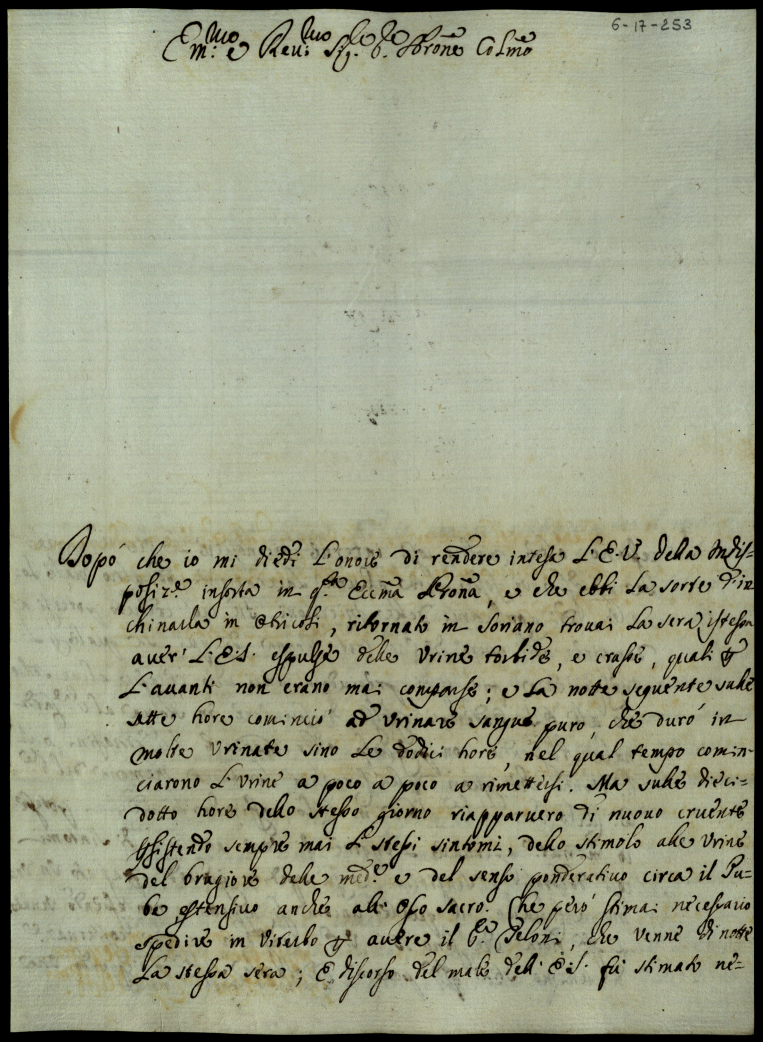 6-17-253
Em.mo e Rev.mo Sig.re Sig.re Prone Colmo
Dopò che io mi diedi l'onore di rendere intesa l'E.V. della Indis-
posiz.e insorta in q.sta Eccma Prona, e che ebbi la sorte d'in
chinarla in , ritornato in Soriano trovai la sera istessa
aver' l'E.S. espulse delle Urine torbide, e crasse, quali p
l'avanti non erano mai comparse; e la notte seguente sulle
sette hore cominciò ad Urinare sangue puro, che durò in
molte Urinate sino le dodici hore, nel qual tempo comin-
ciarono l'Urine a poco a poco a rimettersi. Ma sulle dieci-
dotto hore dello stesso giorno riapparvero di nuovo cruente
psistendo sempre mai l'istessi sintomi, dello stimolo alle Urine
del brugiore delle med.e e del senso ponderativo circa il Pu-
be estensivo anche all'Osso sacro. Che però stimai necessario
spedire in Viterbo p avere il Peloni, che venne di notte
la stessa sera; E discorso del male dell'E.S. fù stimato ne-